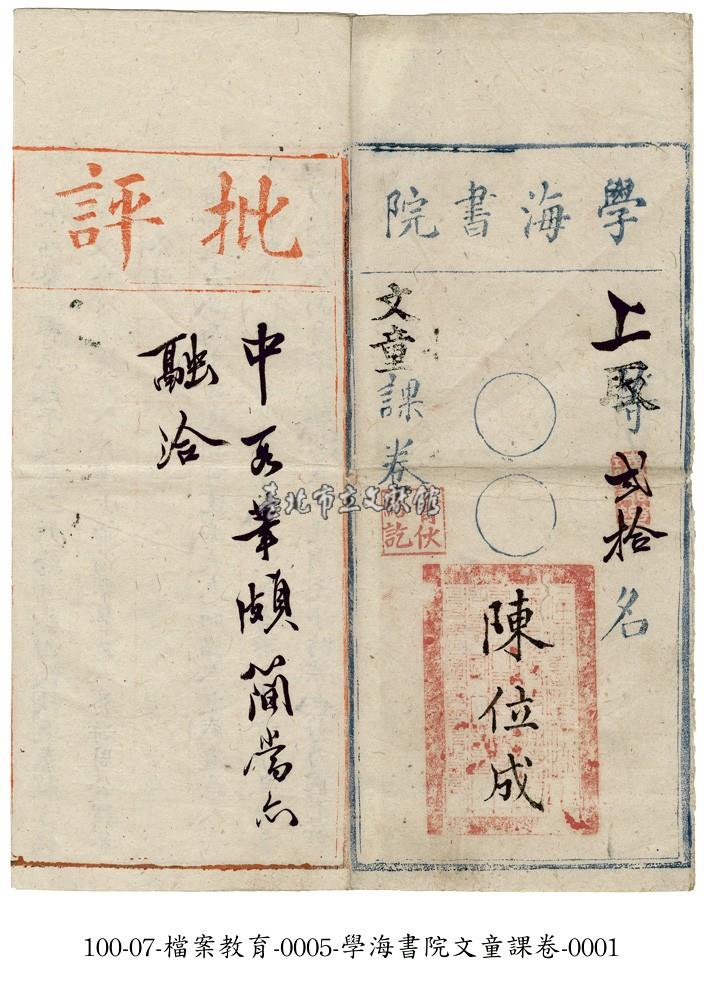 學海書院
上取貳拾名
文童課卷
陳位成
批評
中二筆頗簡當亦
融洽
臺北市立文獻館
100-07-檔案教育-0005-學海書院文童課卷-0001